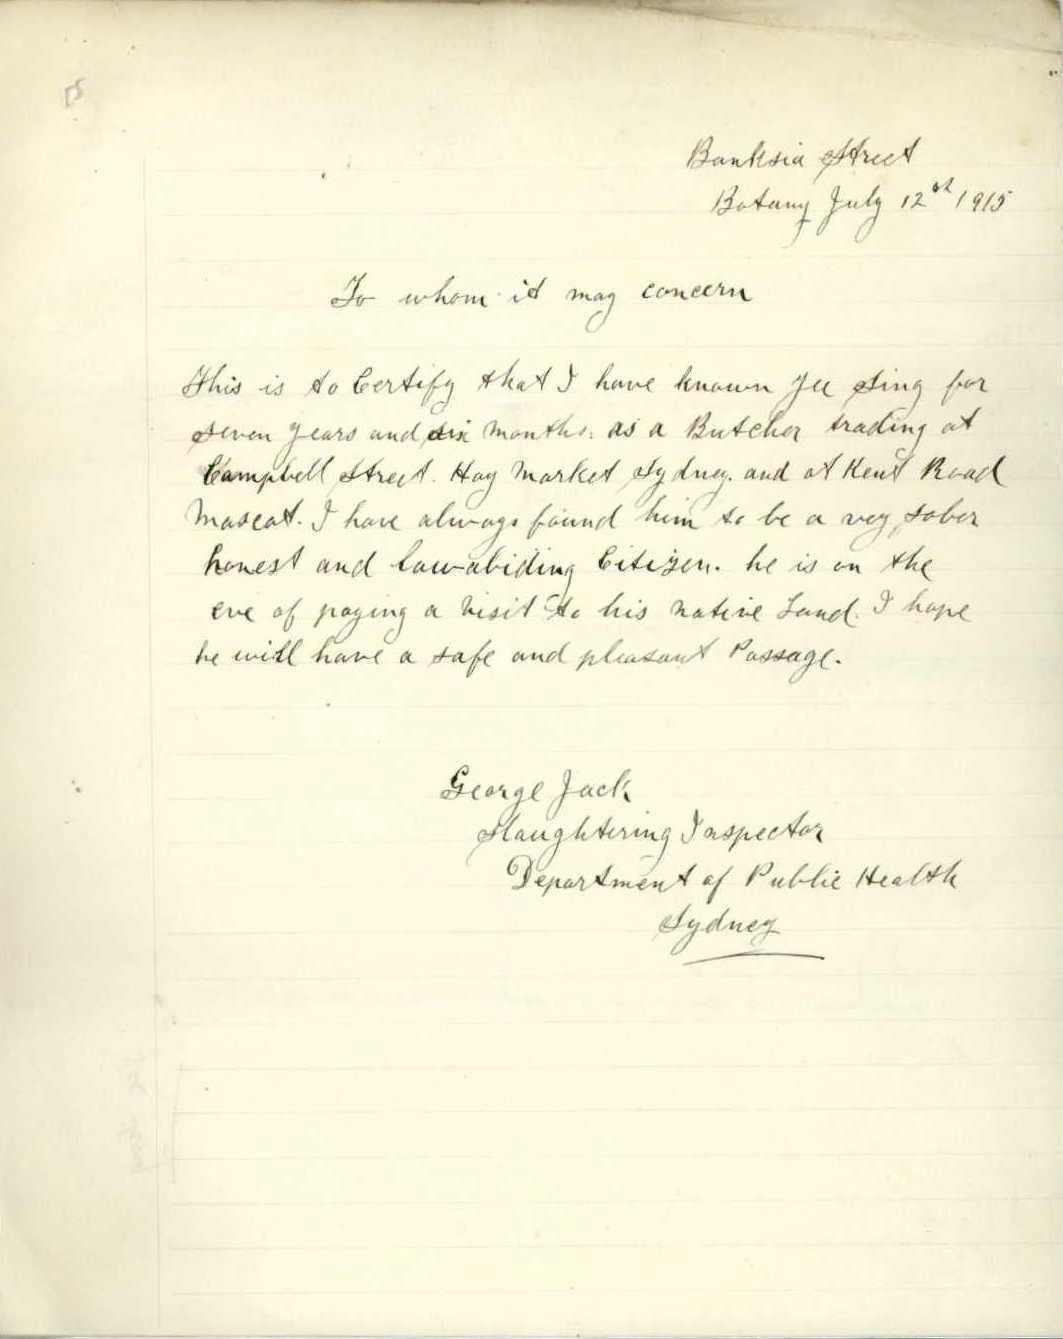 15
Banksia Street
Botany July 12th 1915
To whom it may concern
This is to Certify that I have known Yee Sing for
seven years and six months. as a Butcher trading at
Campbell Street. Hay Market Sydney. and at Kent Road
Mascot. I have always found him to be a very sober
honest and law-abiding Citizen. he is on the
eve of paying a visit to his native Land. I hope
he will have a safe and pleasant Passage.
George Jack
Slaughtering Inspector
Department of Public Health
Sydney